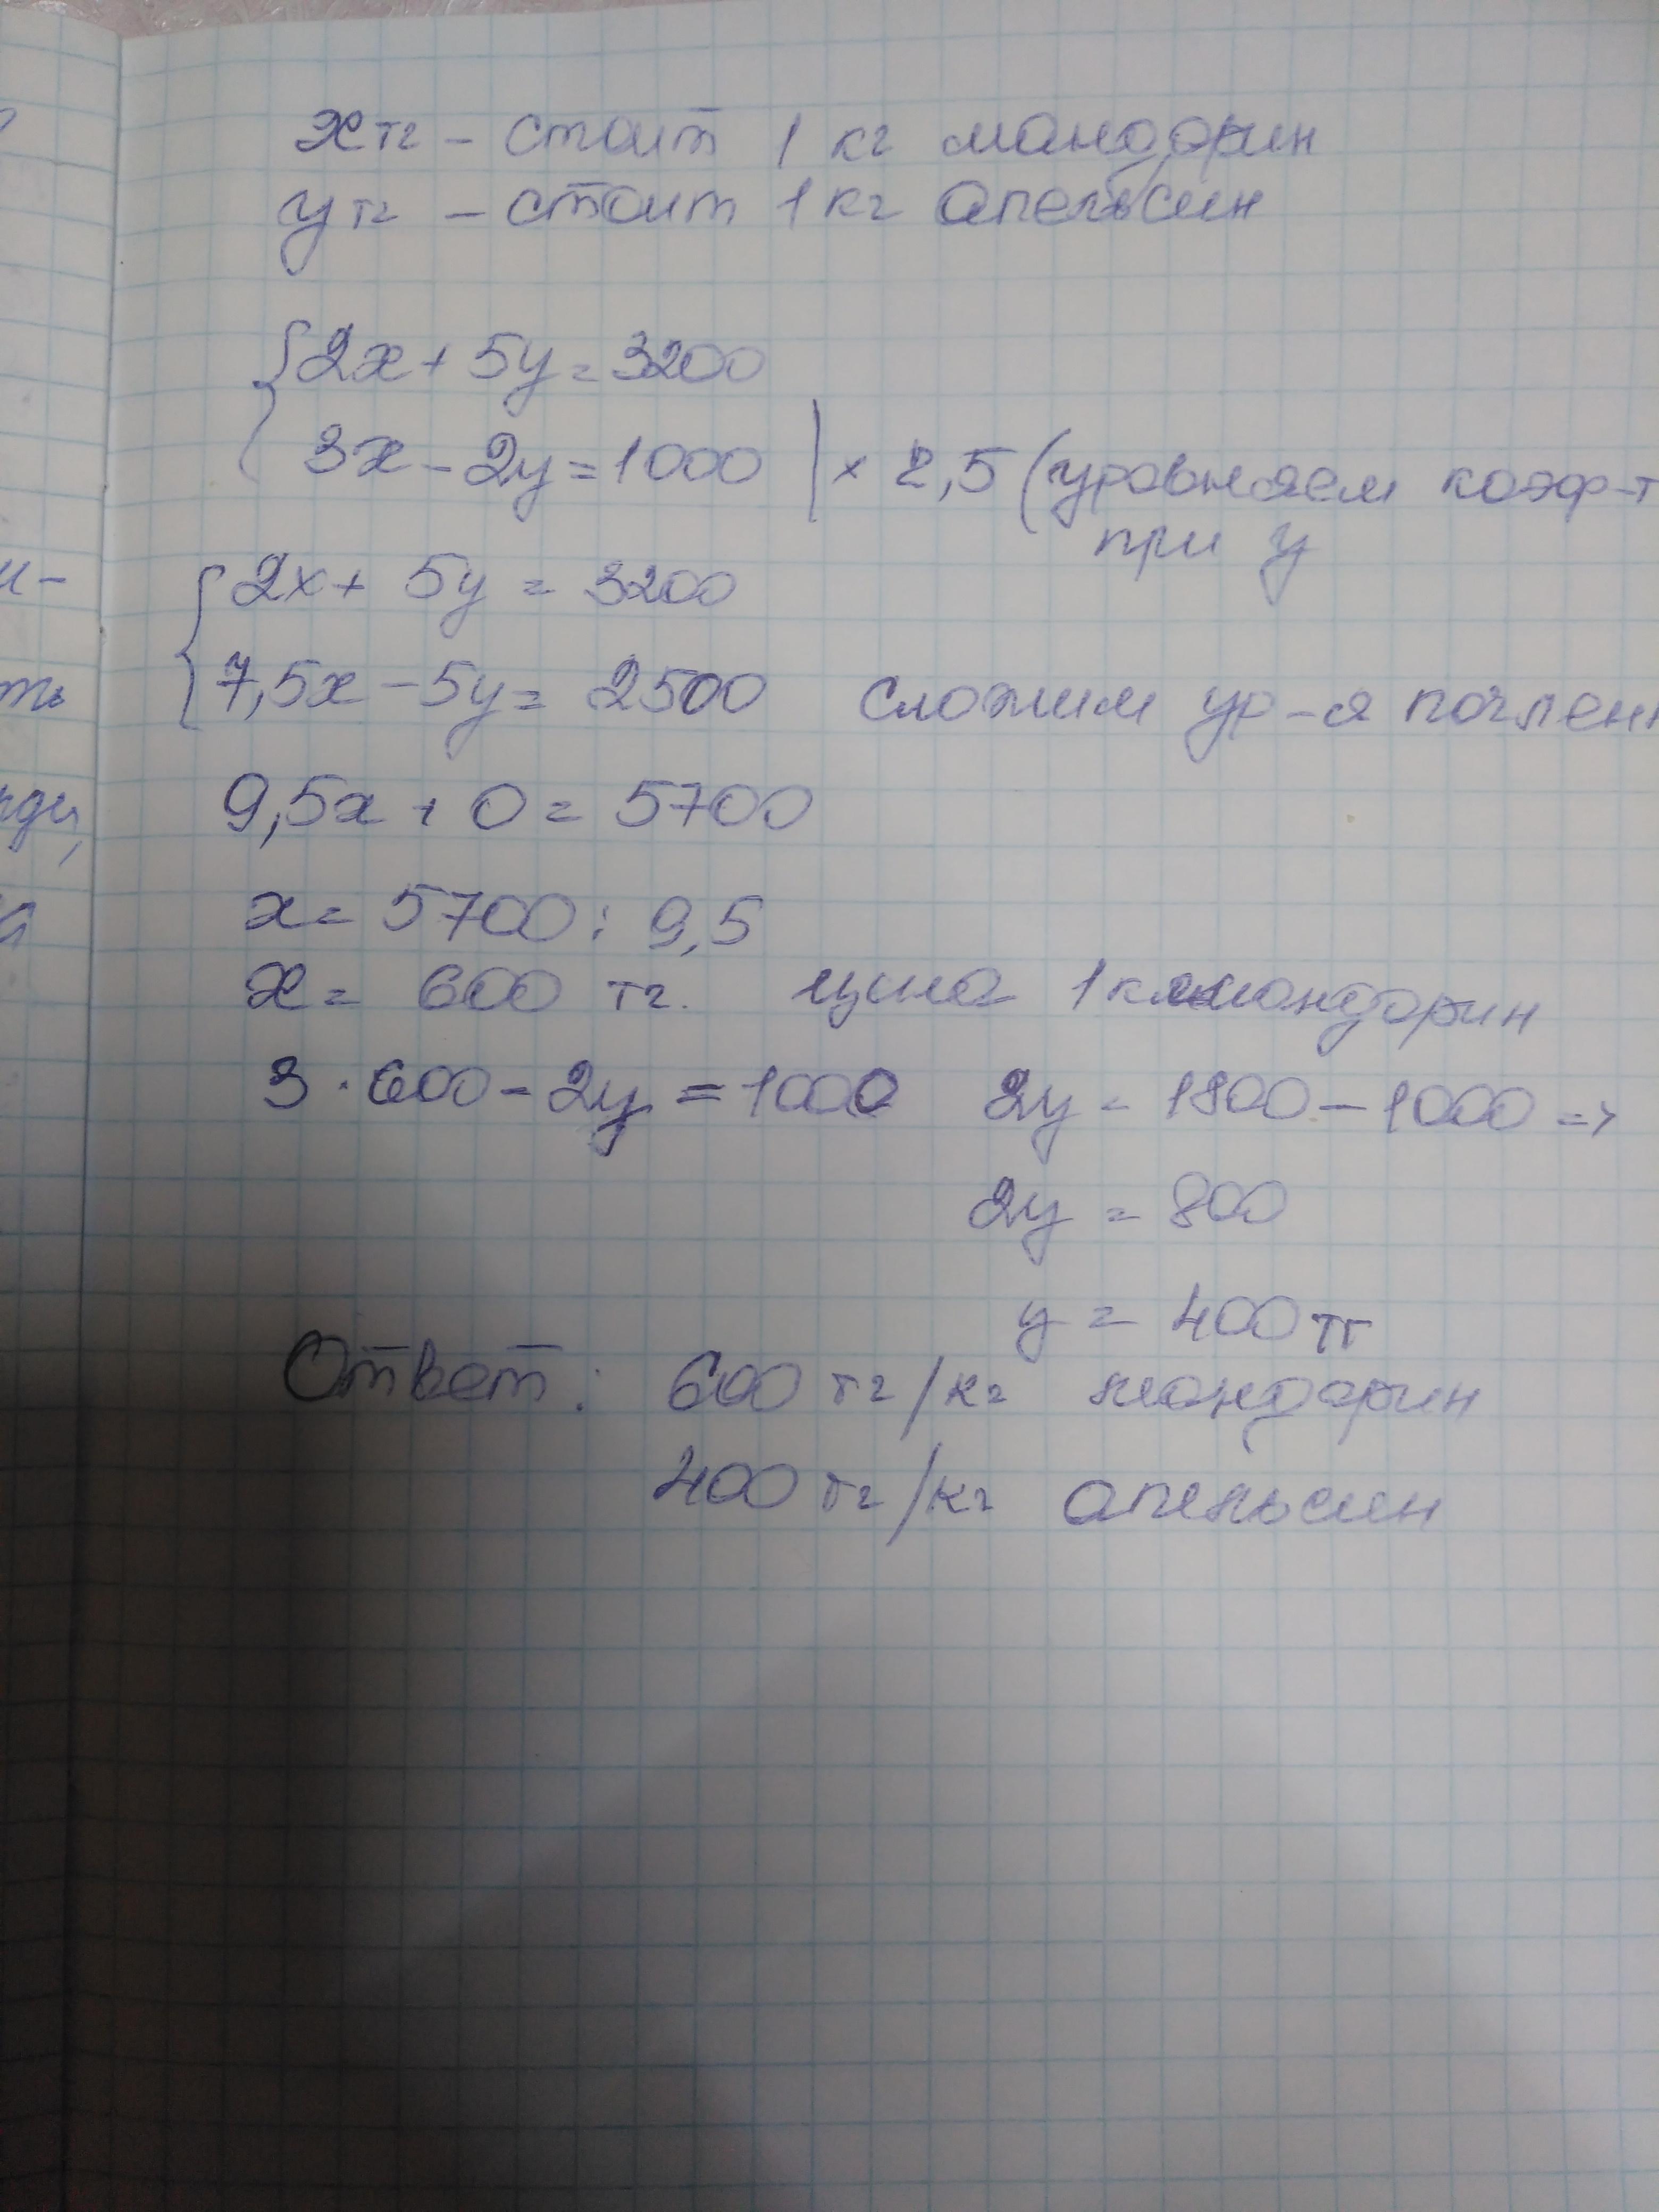 x тг - стоит 1 кг мандарин
y тг - стоит 1 кг апельсин
2x + 5y = 3200
3x - 2y = 1000 | × 2,5 (уровняем коэф-т
при y
2x + 5y = 3200
7,5x - 5y = 2500 сложим ур-я почлен
9,5x + 0 = 5700
x = 5700 : 9,5
x = 600 тг. цена 1 кг мандарин
3 · 600 - 2y = 1000 2y = 1800 - 1000 =>
2y = 800
y = 400 тг
Ответ: 600 тг/кг мандарин
400 тг/кг апельсин